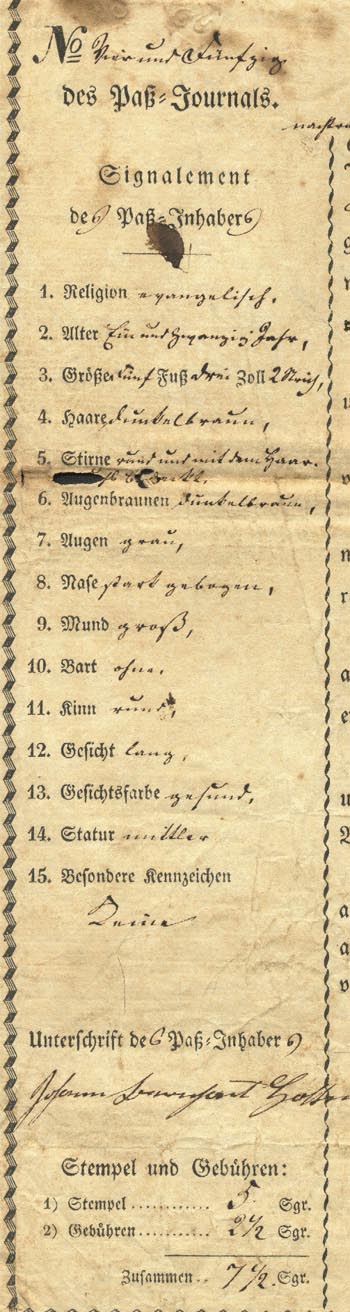 No Vier und Fünfzig
des Paß-Journals.
Signalement
des Paß-Inhabers
1. Religion evangelisch,
2. Alter Ein und zwanzig Jahr,
3. Größe fünf Fuß drei Zoll 2 Strich,
4. Haare dunkelbraun,
5. Stirne rund und mit dem Haar
6. Augenbraunen dunkelbraun,
7. Augen grau,
8. Nase stark gebogen,
9. Mund groß,
10. Bart ohne,
11. Kinn rund,
12. Gesicht lang,
13. Gesichtsfarbe gesund,
14. Statur mittler
15. Besondere Kennzeichen
Keine
Unterschrift des Paß-Inhabers
Johann
Stempel und Gebühren:
1) Stempel........... 5. Sgr.
2) Gebühren.......... 2 1/2 Sgr.
Zusammen.. 7 1/2. Sgr.